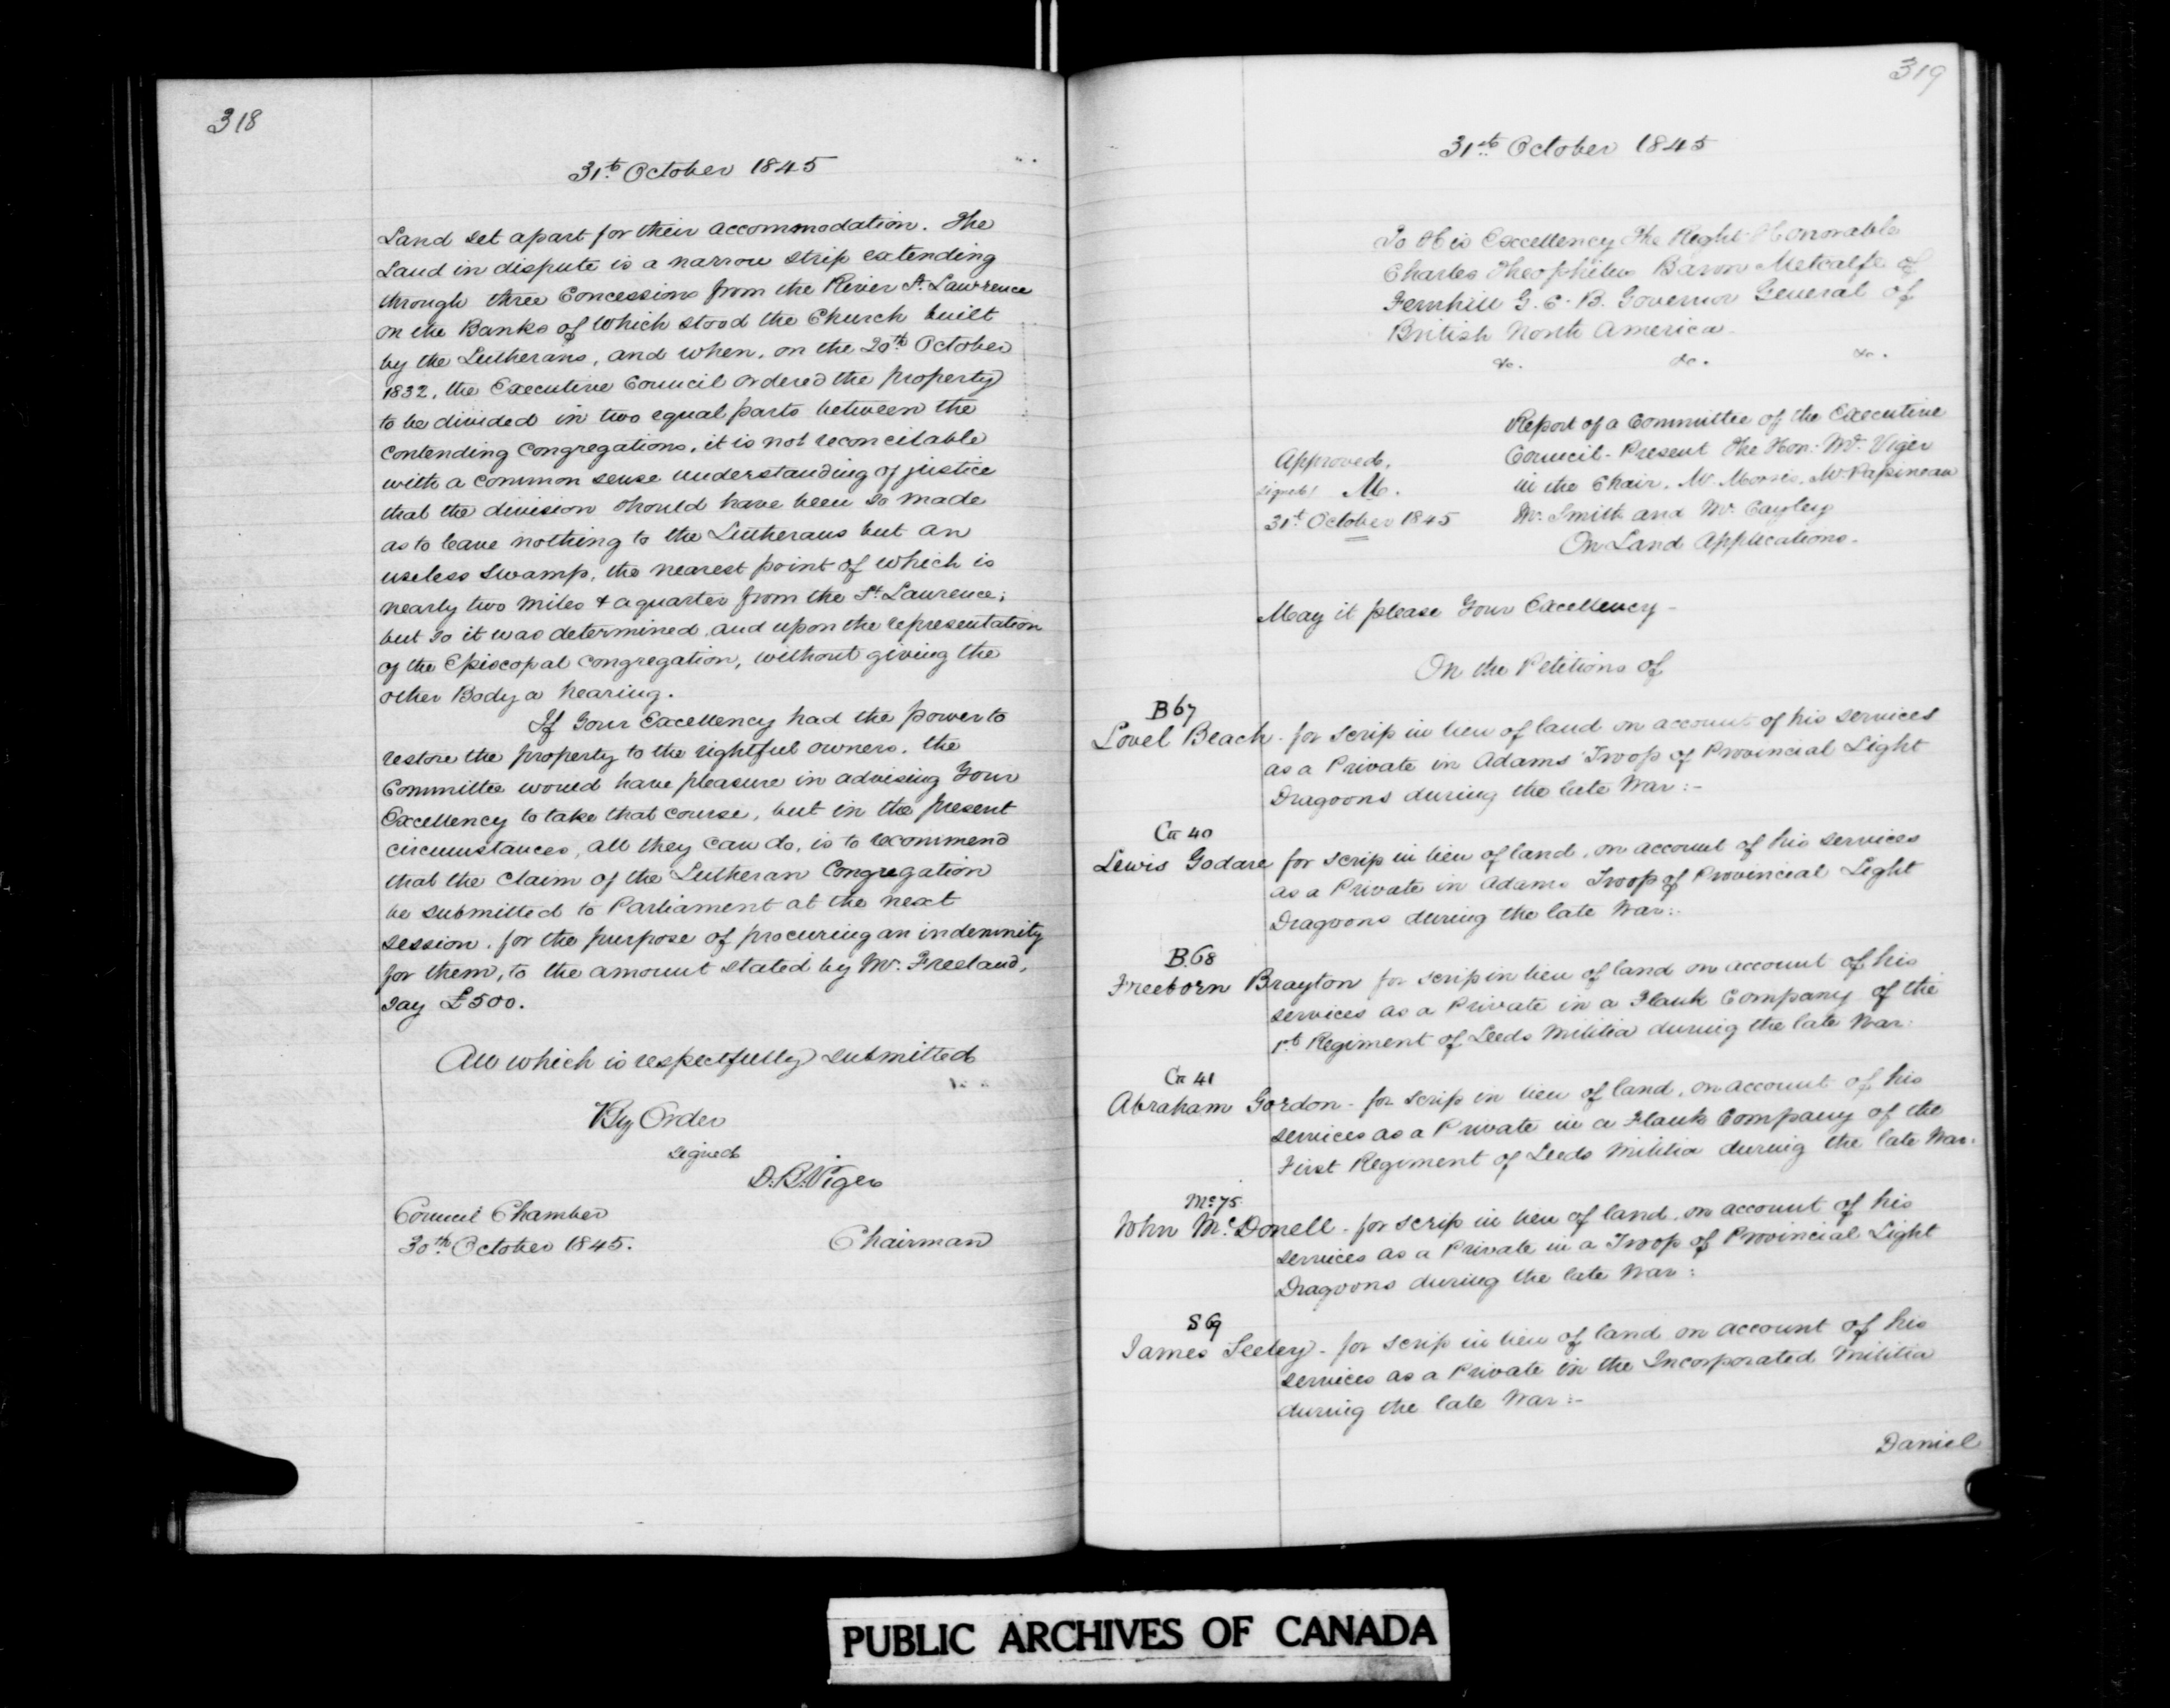 318
31st October 1845
Land set apart for their accommodation. The
Land in dispute is a narrow strip extending
through three Concessions from the River St. Lawrence
on the Banks of which stood the Church built
by the Lutherans, and when, on the 20th October
1832, the Executive Council ordered the property
to be divided in two equal parts between the
contending Congregations, it is not reconcilable
with a common sense understanding of justice
that the division should have been so made
as to leave nothing to the Lutherans but an
useless Swamp, the nearest point of which is
nearly two miles & a quarter from the St. Laurence;
but so it was determined, and upon the representation
of the Episcopal Congregation, without giving the
other Body a hearing.
If Your Excellency had the power to
restore the property to the rightful owners, the
Committee would have pleasure in advising Your
Excellency to take that course, but in the present
circumstances, all they can do, is to recommend
that the Claim of the Lutheran Congregation
be submitted to Parliament at the next
session, for the purpose of procuring an indemnity
for them, to the amount stated by Mr. Freeland,
say £500.
All which is respectfully submitted
By Order
signed
D. B. Viger
Council Chamber
30th October 1845.
Chairman
319
31st October 1845
To His Excellency The Right Honorable
Charles Theophilus Baron Metcalfe of
Fernhill G.C.B. Governor General of
British North America
&c. &c. &c.
Report of a Committee of the Executive
Council - Present The Hon: Mr. Viger
in the Chair, Mr. Morris, Mr. Papineau
Mr. Smith and Mr. Cayley
On Land Applications.
Approved,
signed/ M.
31st October 1845
May it please Your Excellency -
On the Petitions of
B 67
Lovel Beach - for scrip in lieu of land on account of his services
as a Private in Adams' Troop of Provincial Light
Dragoons during the late War:-
G 40
Lewis Godare for scrip in lieu of land, on account of his services
as a Private in Adams Troop of Provincial Light
Dragoons during the late War:-
B.68
Freeborn Brayton for scrip in lieu of land on account of his
services as a Private in a Flank Company of the
1st Regiment of Leeds Militia during the late War:
G 41
Abraham Gordon - for scrip in lieu of land, on account of his
services as a Private in a Flank Company of the
First Regiment of Leeds Militia during the late War:
Mc 75
John McDonell - for scrip in lieu of land, on account of his
services as a Private in a Troop of Provincial Light
Dragoons during the late War:
S 69
James Seeley - for scrip in lieu of land on account of his
services as a Private in the Incorporated Militia
during the late War:-
Daniel
PUBLIC ARCHIVES OF CANADA